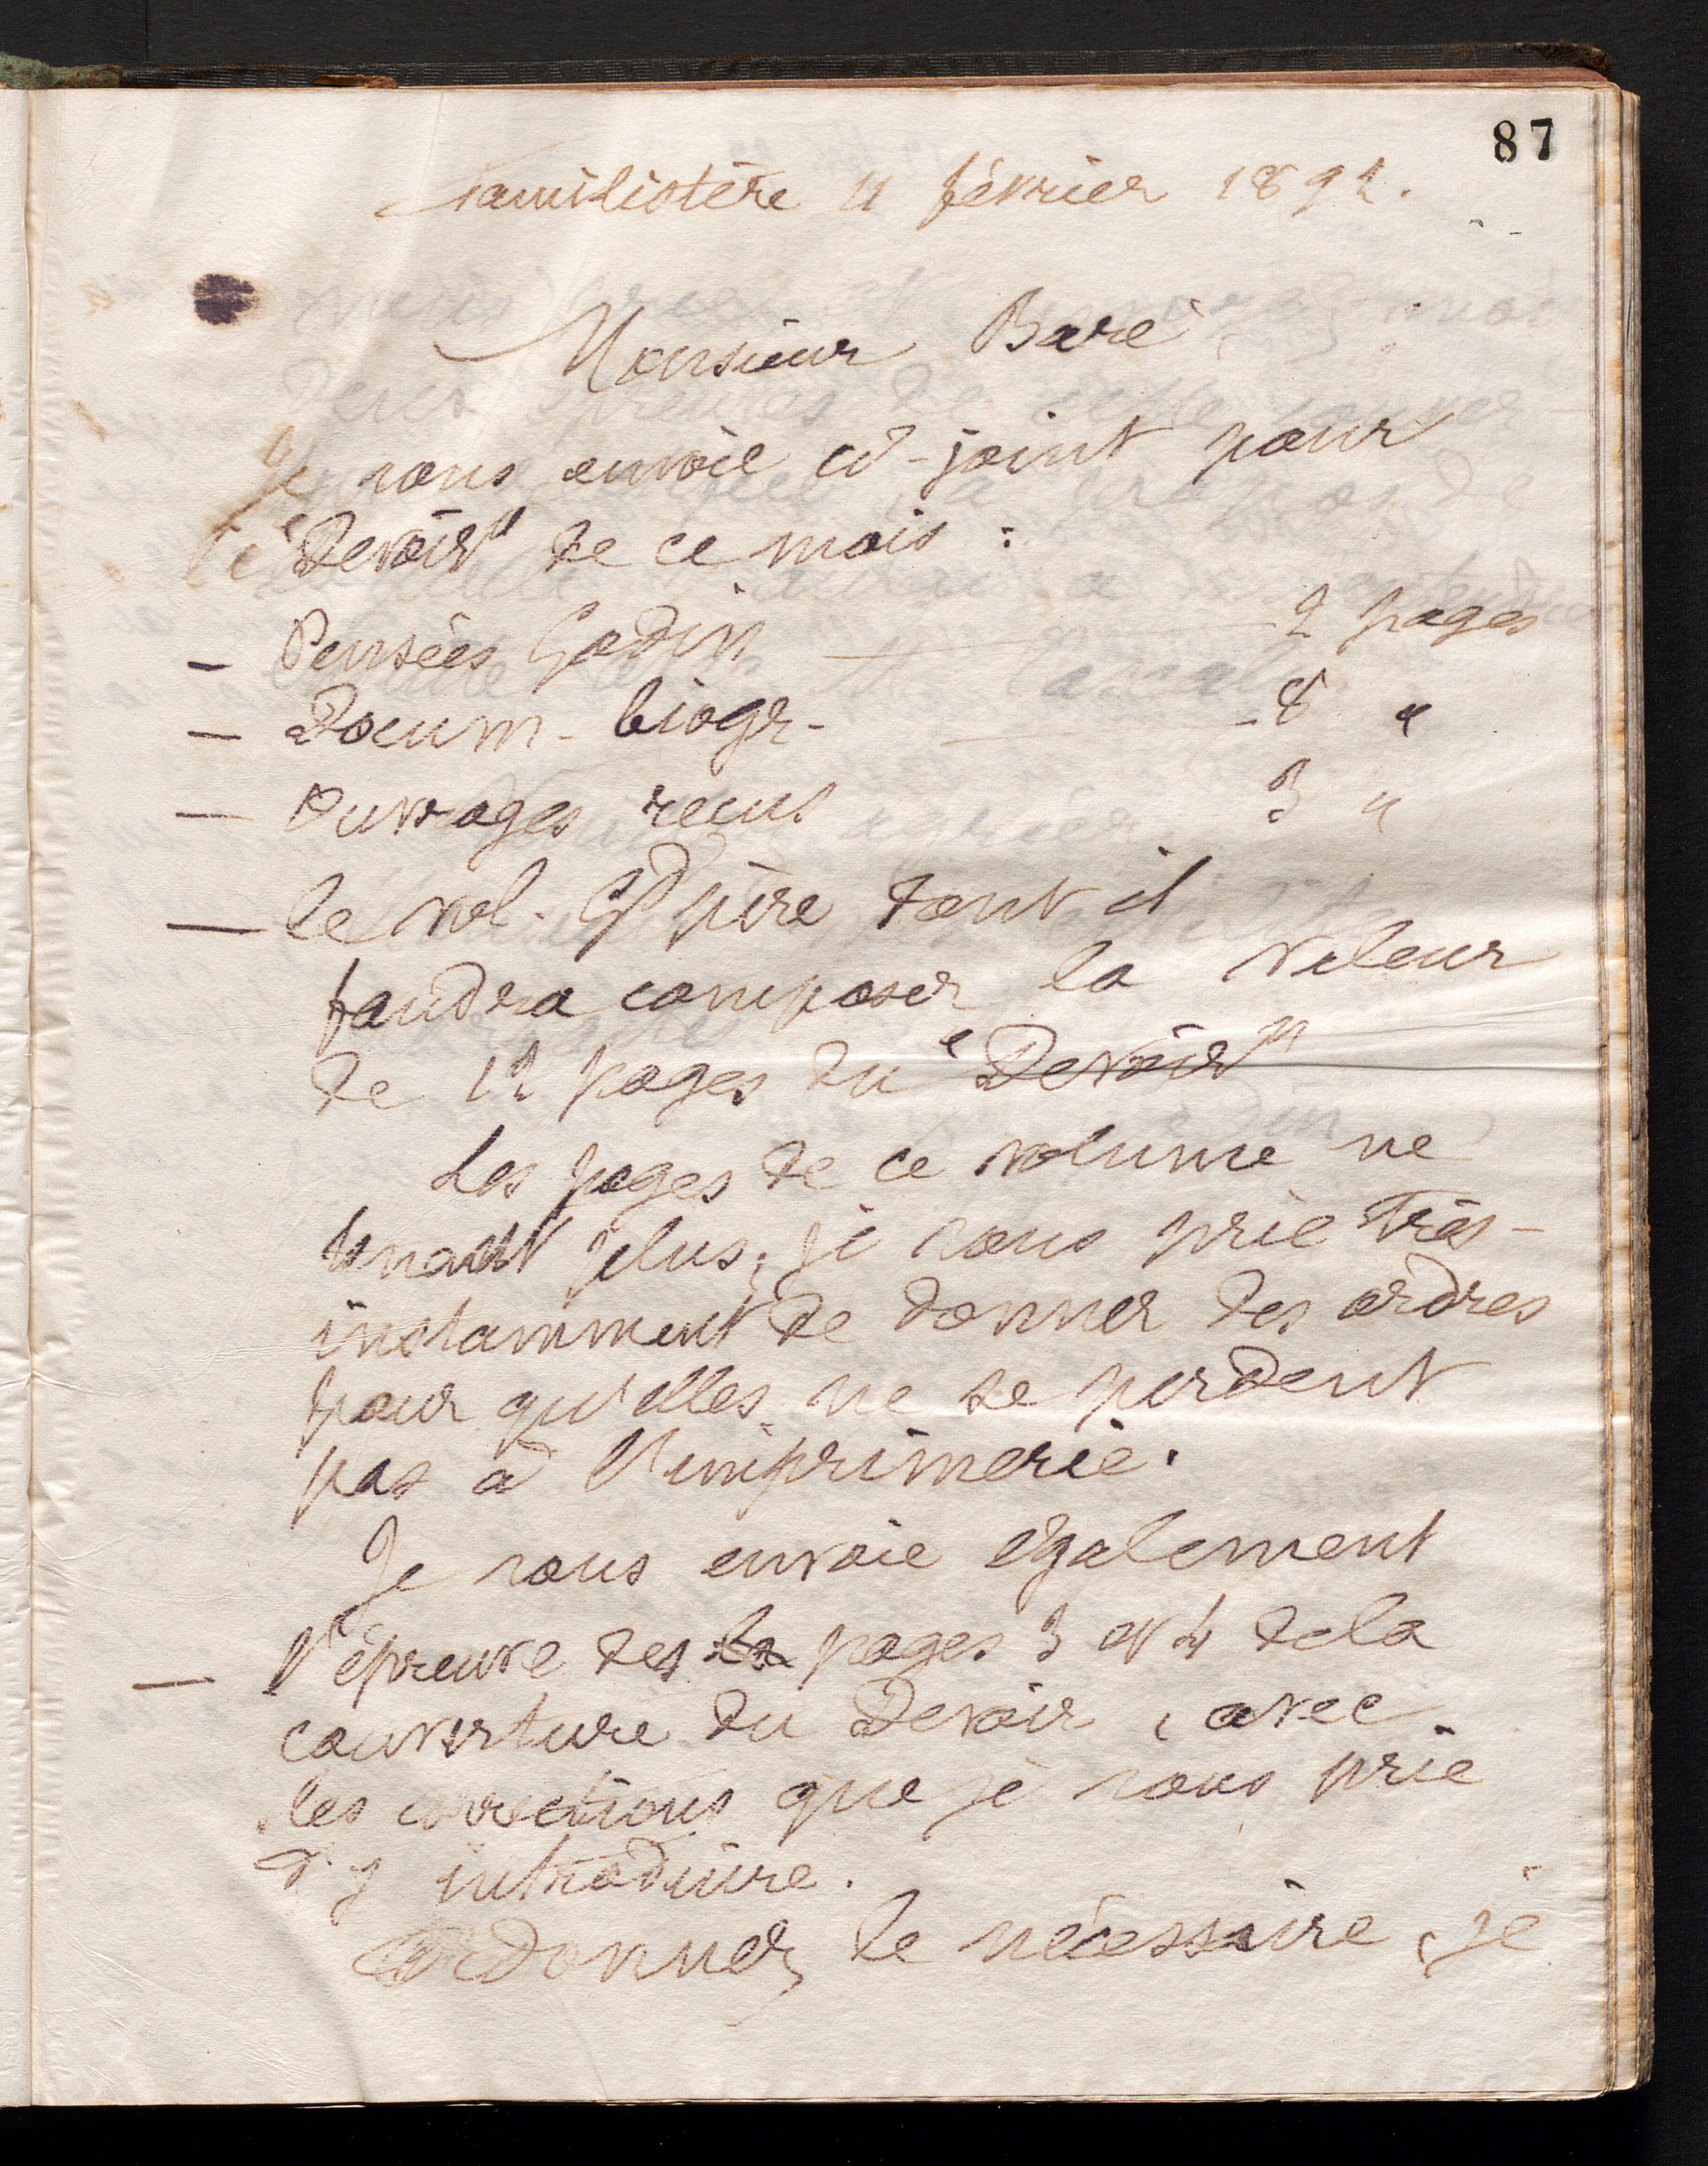 87
Familistère 4 février 1892.
Monsieur Baré
Je vous envoie ci-joint pour
le "Devoir" de ce mois :
— Pensées Godin — 2 pages
— Docum. biogr. — 8 "
— Ouvrages reçus 3 "
— le vol. Gd père dont il
faudra composer la valeur
de 12 pages du "Devoir"
Les pages de ce volume ne
tenant plus, je vous prie très-
instamment de donner des ordres
pour qu'elles ne se perdent
pas à l'imprimerie.
Je vous envoie également
— l'épreuve des pages 3 et 4 de la
couverture du Devoir, avec
les corrections que je vous prie
d'y introduire.
Ordonnez le nécessaire, je